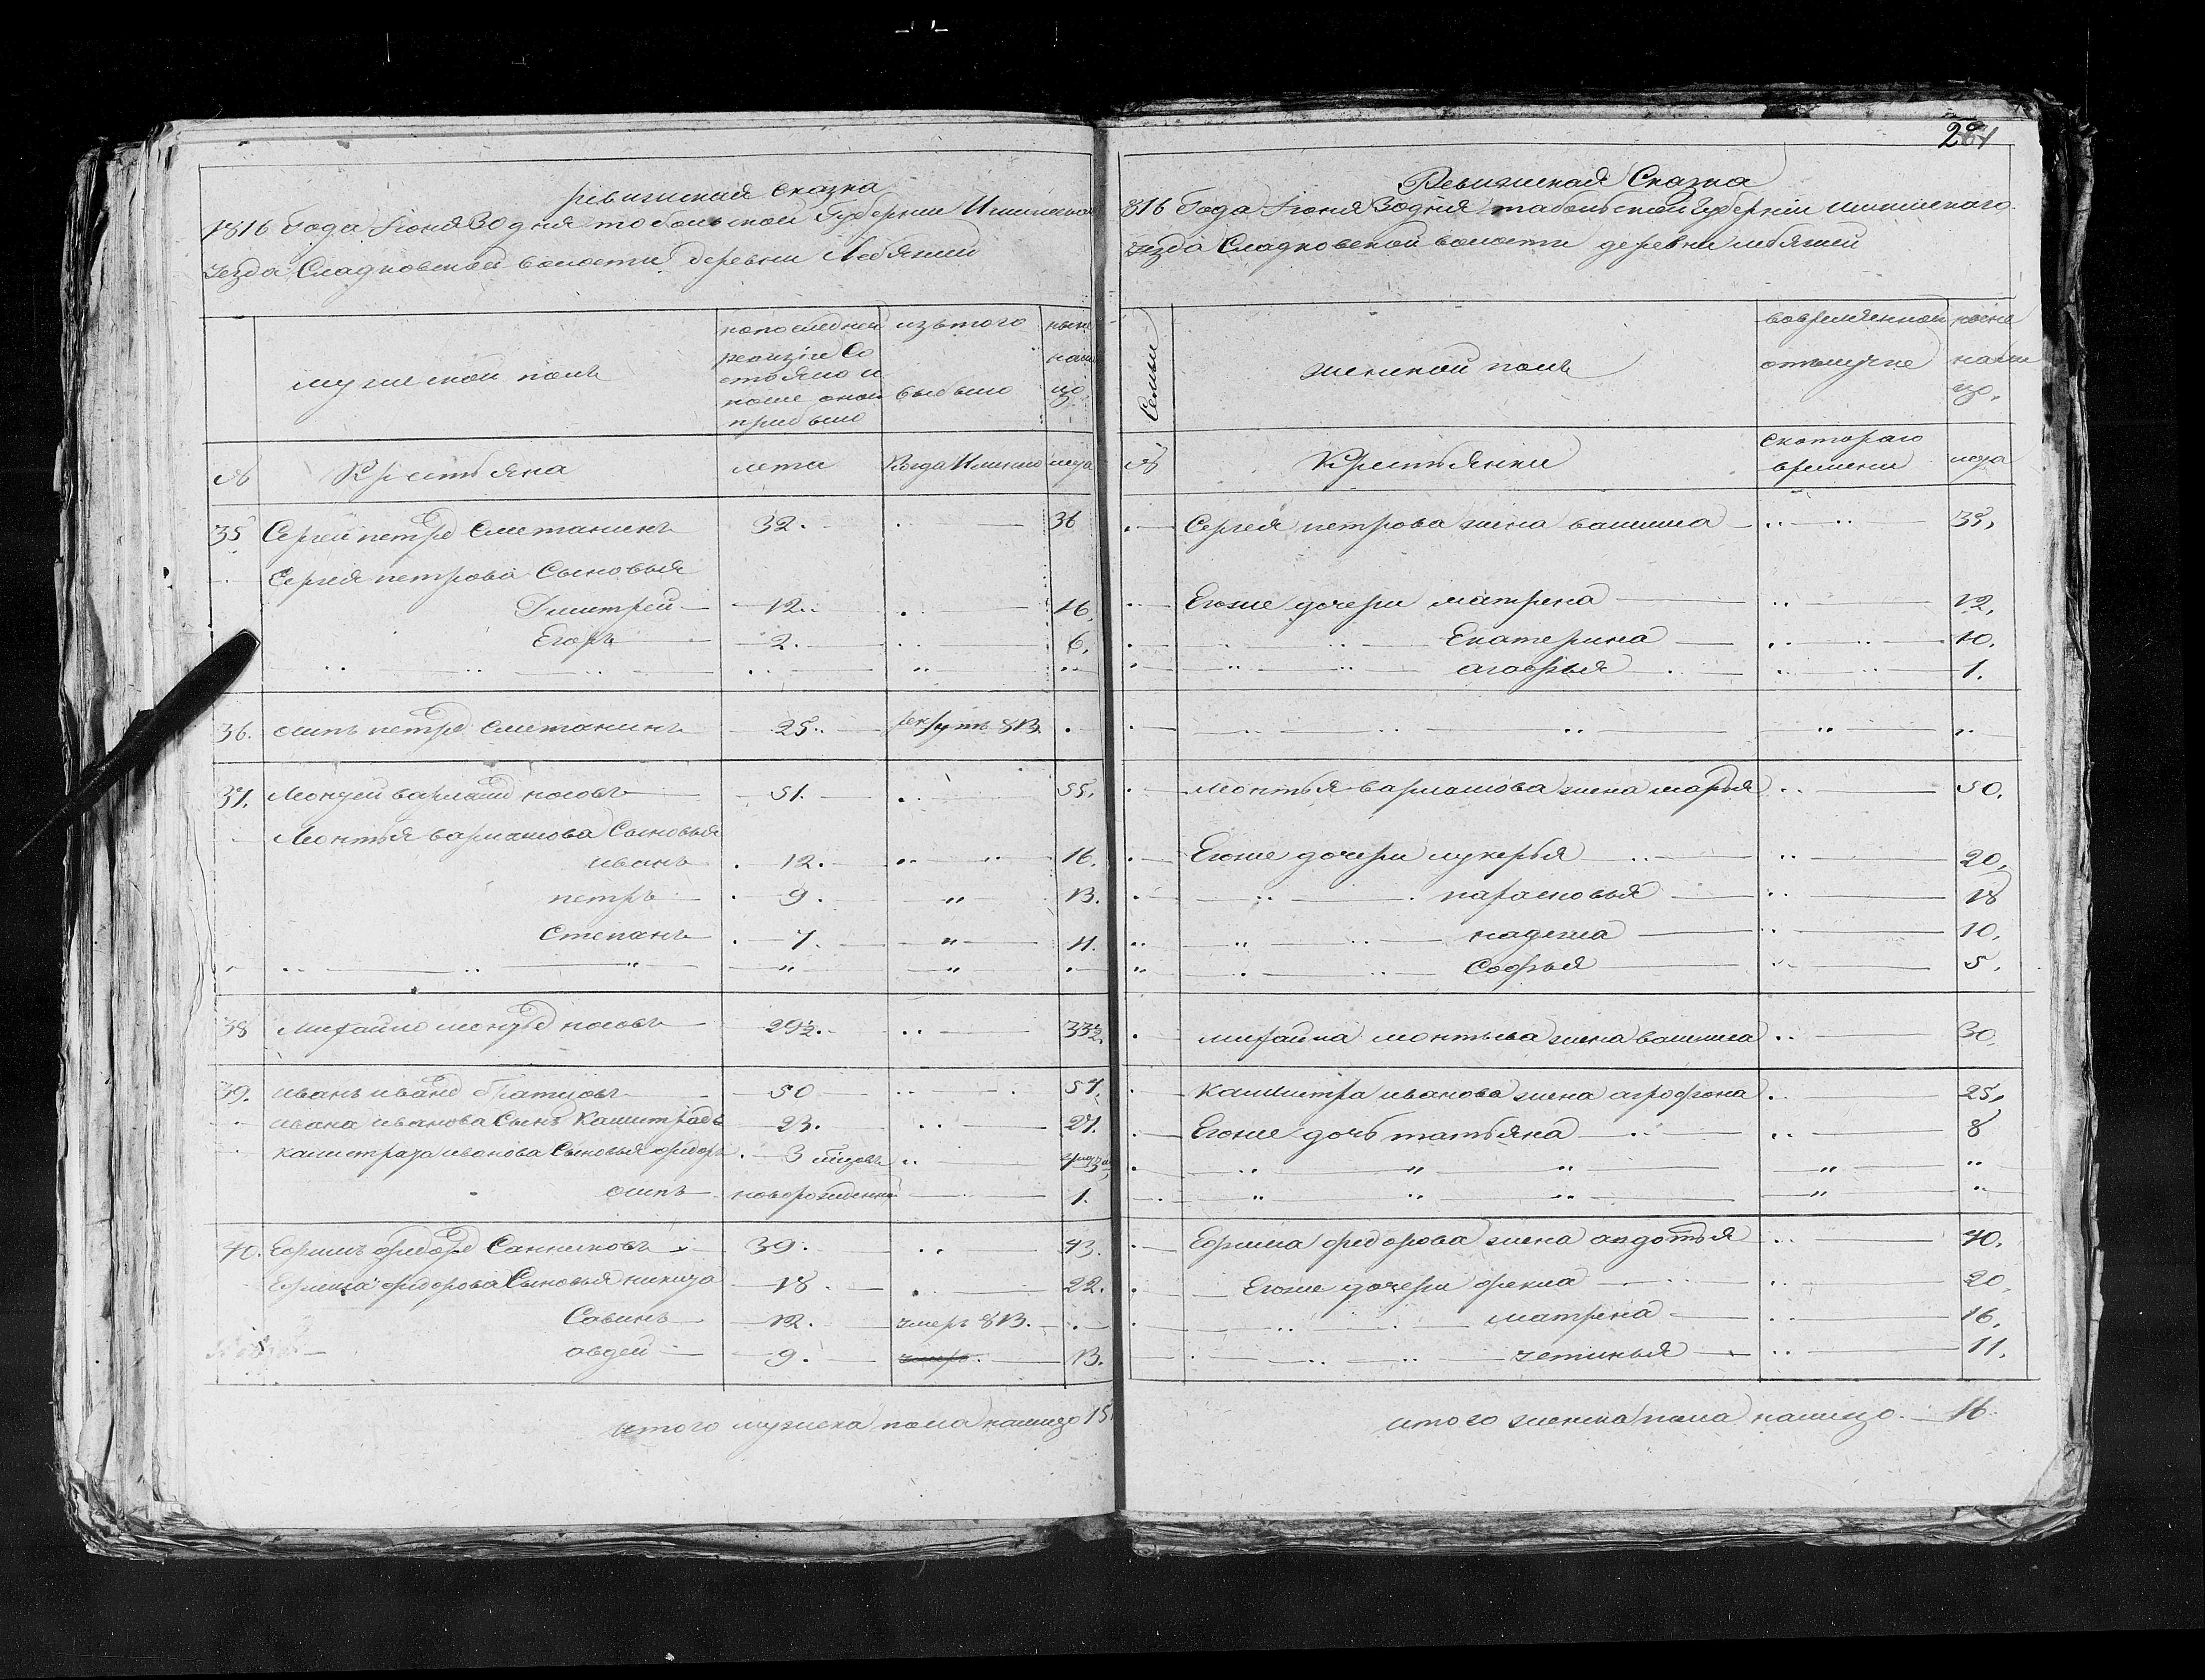 ревижская сказка
1816 Года Июня 30 дня тобольской Губернии Ишимскаго
уезда Сладковской волости деревни Лебяжей
мужеской полъ
попоследней ревизiи Состояло и после оной прибыло
изътого выбыло
ныне налицо
№
Крестьяна
лета
Когда Имянно
лета
35 Сергей петро́в Сметанинъ 32. 36
Сергея петрова Сыновья
Дмитрей 12. 16.
Егоръ 2. 6.
36. осипъ петров Сметанинъ 25. рекрутъ 813.
37. Леонтей варламов носовъ 51. 55.
Леонтья варламова Сыновья
иванъ 12. 16.
петръ 9. 13.
Степанъ 7. 11.
38 михайло леонтьев носовъ 29½. 33½.
39. иванъ иванов братцовъ 50 54.
ивана иванова Сынъ Калистратъ 23. 27.
калистрата иванова Сыновья федоръ 3 месецовъ
осипъ новорожденный 1.
40. Ефимъ федоров Санниковъ 39. 43.
Ефима федорова Сыновья никита 18 22.
Савинъ 12. умеръ 813.
овдей 9. умеръ. 13.
итого мужеска пола налицо 15
264
Ревижская Сказка
816 Года Июня 30 дня табольской Губернiи ишимскаго
уезда Сладковской волости деревни лебяжей
Семьи
женской полъ
вовремянной отлучке
ныне налицо
№
Крестьянки
Скотораго времени
лета
Сергея петрова жена василиса 35,
Егоже дочери матрена 12,
Екатерина 10.
агафья 1.
леонтья варламова жена марья 50.
Егоже дочери лукерья 20,
парасковья 18
надежа 10,
Софья 5.
михайла леонтьева жена василиса 30.
калистра иванова жена агрофона 25,
Егоже дочь татьяна 8
Ефима федорова жена авдотья 40.
Егоже дочери фекла 20.
матрена 16.
устинья 11.
итого женска пола налицо. 16.